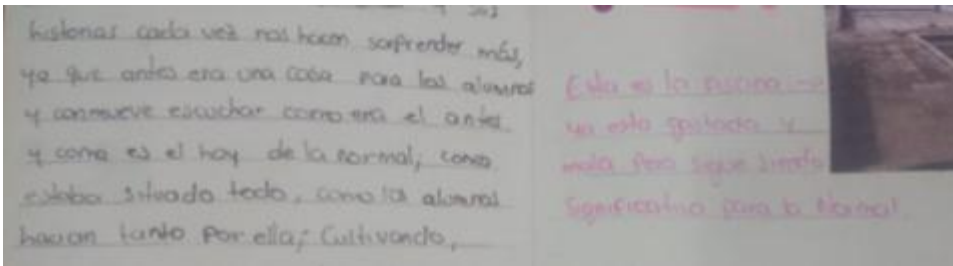 y sus
historias cada vez nos hacen sorprender más,
ya que antes era una casa para los alumnos
y conmueve escuchar como era el antes
y como es el hoy de la normal, como
estaba situado todo, como los alumnos
hacian tanto por ella; Cultivando,
Esta es la piscina
ya esta gastada y
mala pero sigue siendo
significativo para la Normal